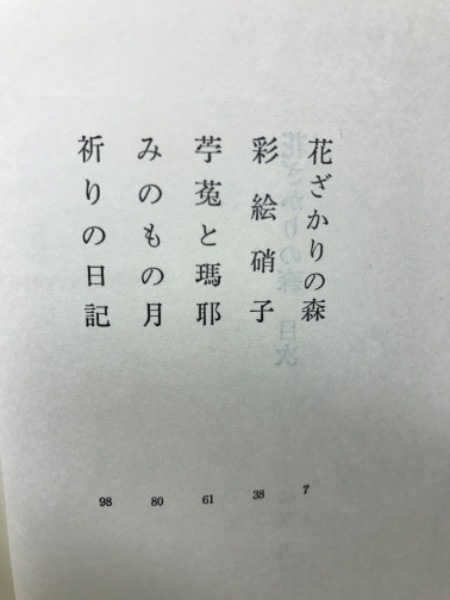 花ざかりの森 7
彩絵硝子 38
苧菟と瑪耶 61
みのもの月 80
祈りの日記 98
花ざかりの森 目次